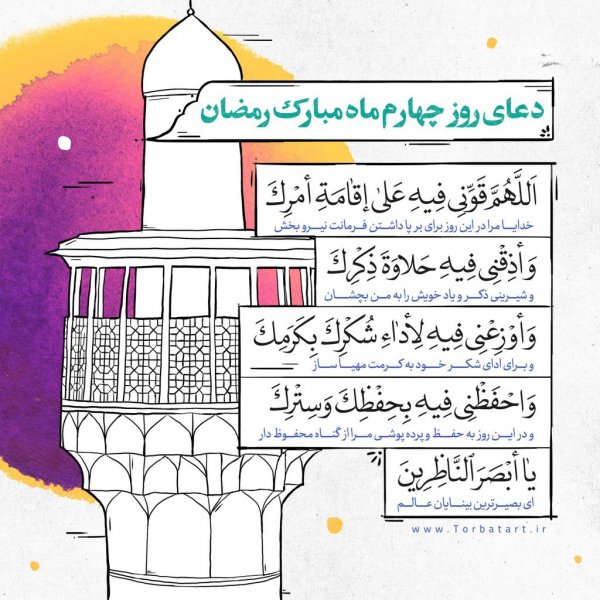 دعای روز چهارم ماه مبارک رمضان
اَللَّهُمَّ قَوِّنِی فِیهِ عَلَىٰ إِقَامَةِ أَمْرِكَ
خدایا مرا در این روز برای بر پا داشتن فرمانت نیرو بخش
وَ أَذِقْنِی فِیهِ حَلاوَةَ ذِكْرِكَ
و شیرینی ذکر و یاد خویش را به من بچشان
وَ أَوْزِعْنِی فِیهِ لِأَدَاءِ شُكْرِكَ بِكَرَمِكَ
و برای ادای شکر خود به کرمت مهیا ساز
وَ احْفَظْنِی فِیهِ بِحِفْظِكَ وَ سِتْرِكَ
و در این روز به حفظ و پرده پوشی مرا از گناه محفوظ دار
یَا أَبْصَرَ النَّاظِرِینَ
ای بصیرترین بینایان عالم
www.Torbatart.ir